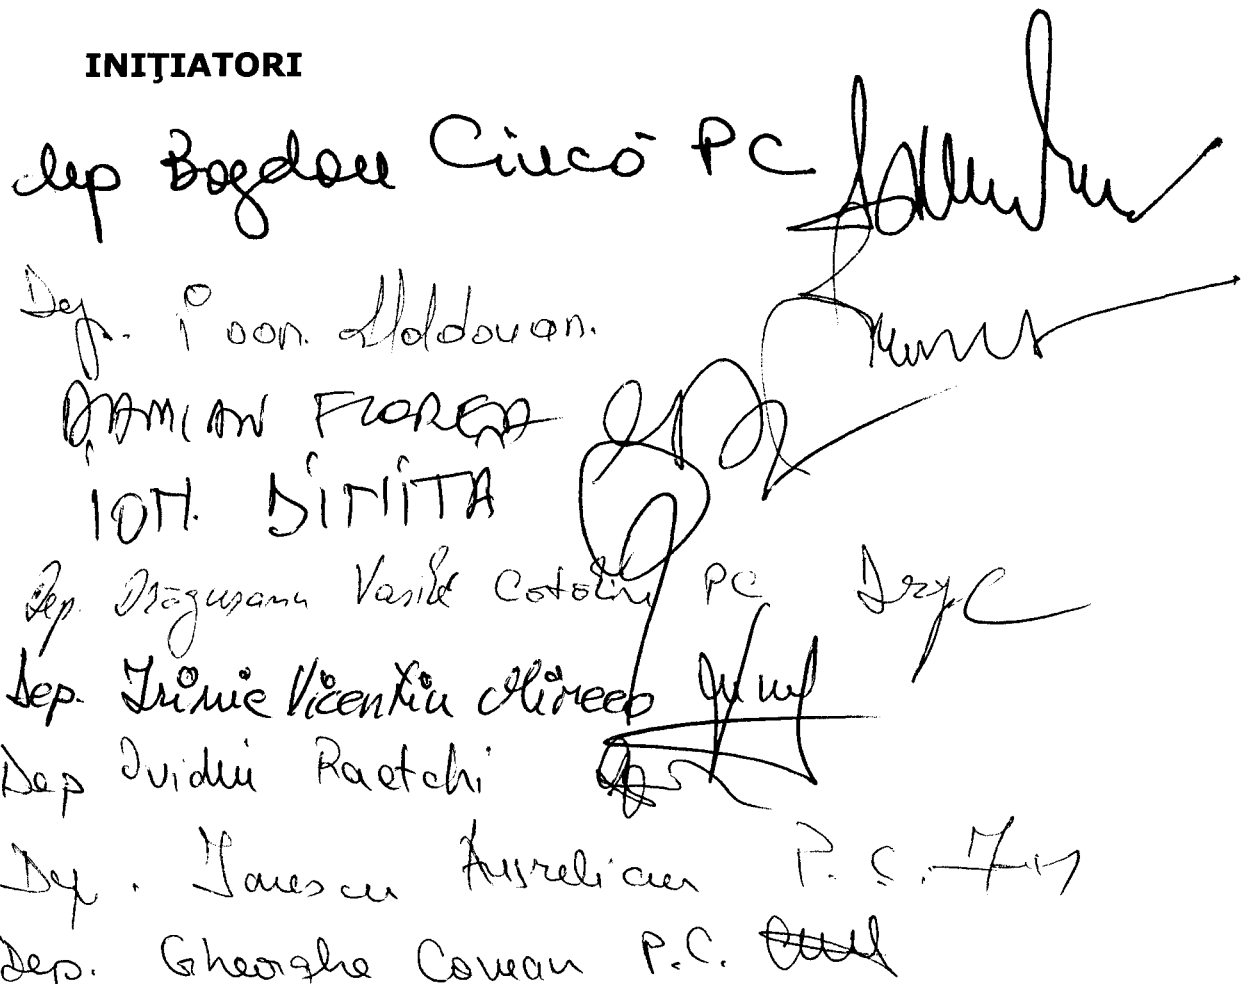 INIŢIATORI
Dep Bogdan Ciucă PC
Dep. Ioan Moldovan.
DAMIAN FLOREA
ION DINIŢĂ
Dep. Drăguşanu Vasile Cătălin PC
Dep. Irimie Vicenţiu Mircea
Dep Ovidiu Raeţchi
Dep. Ionescu Aurelian P.C.
Dep. Gheorghe Coman P.C.